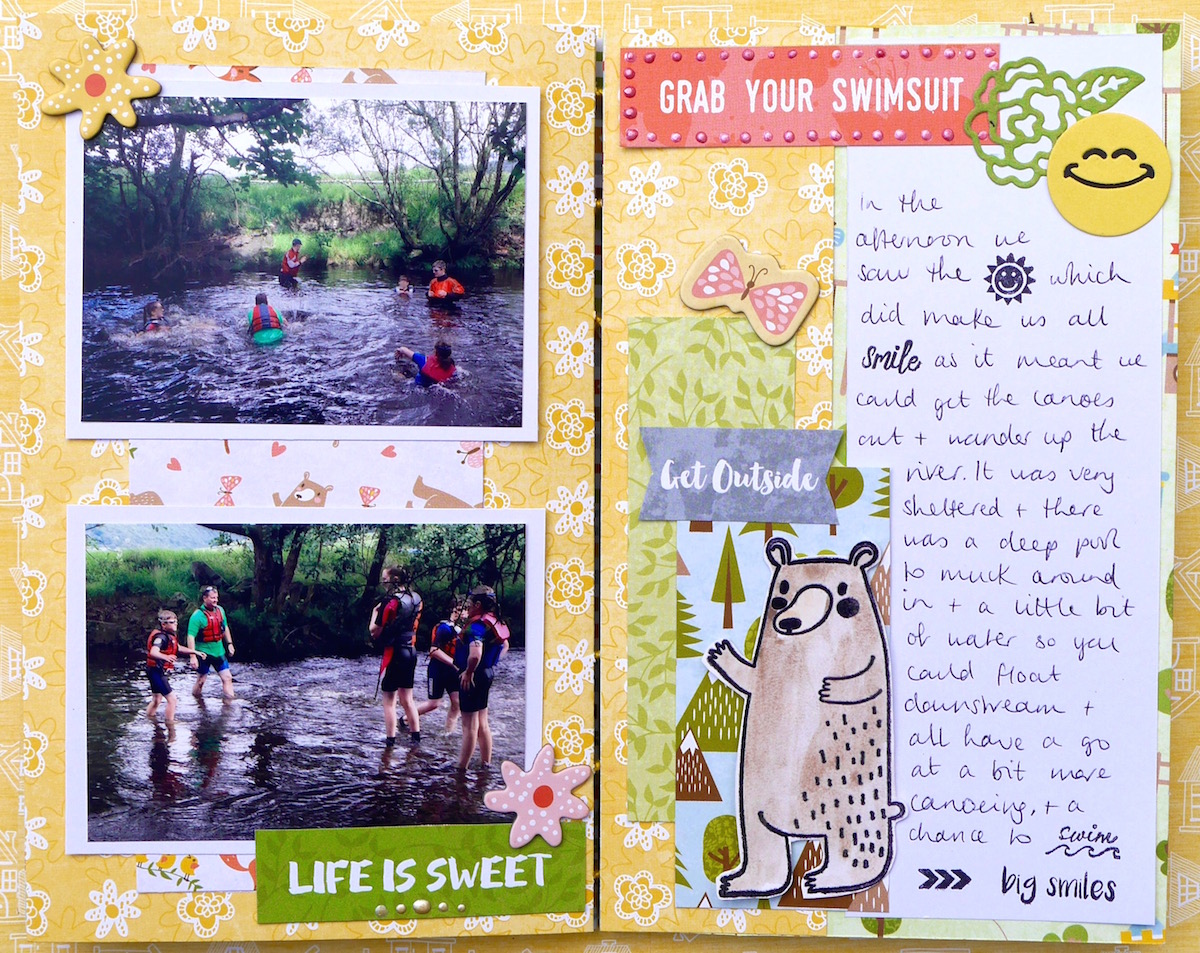 LIFE IS SWEET
GRAB YOUR SWIMSUIT
In the
afternoon we
saw the which
did make us all
smile as it meant we
could get the canoes
out + wander up the
river. It was very
sheltered + there
was a deep pool
to muck around
in + a little bit
of water so you
could float
downstream +
all have a go
at a bit more
canoeing, + a
chance to swim
big smiles
Get Outside